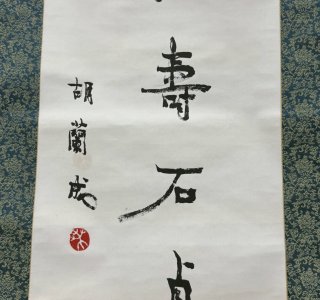 壽石貞
胡蘭成